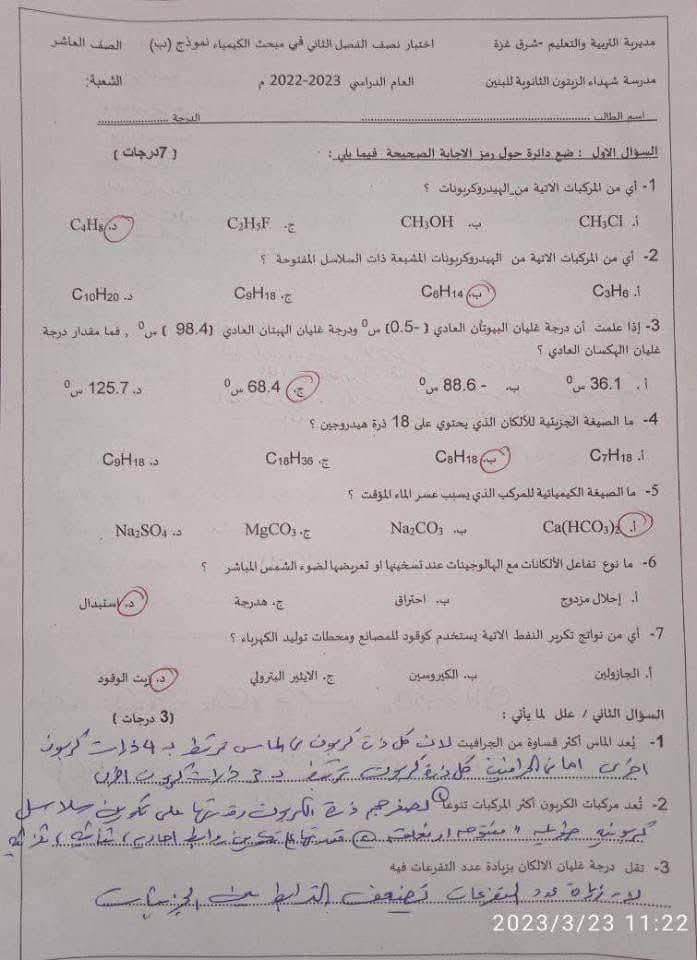 مديرية التربية والتعليم -شرق غزة اختبار نصف الفصل الثاني في مبحث الكيمياء نموذج (ب) الصف العاشر
مدرسة شهداء الزيتون الثانوية للبنين العام الدراسي 2023-2022 م الشعبة:
اسم الطالب ............ الدرجة ............
السؤال الاول : ضع دائرة حول رمز الاجابة الصحيحة فيما يلي : ( 7درجات )
1- أي من المركبات الاتية من الهيدروكربونات ؟
أ. CH3Cl ب. CH3OH ج. C2H5F د. C4H8
2- أي من المركبات الاتية من الهيدروكربونات المشبعة ذات السلاسل المفتوحة ؟
أ. C3H6 ب. C6H14 ج. C9H18 د. C10H20
3- إذا علمت أن درجة غليان البيوتان العادي ( -0.5) س0 ودرجة غليان الهبتان العادي (98.4 ) س0 , فما مقدار درجة
غليان الهكسان العادي ؟
أ . 36.1 س0 ب. - 88.6 س0 ج. 68.4 س0 د. 125.7 س0
4- ما الصيغة الجزيئية للألكان الذي يحتوي على 18 ذرة هيدروجين ؟
أ. C7H18 ب. C8H18 ج. C18H36 د. C9H18
5- ما الصيغة الكيميائية للمركب الذي يسبب عسر الماء المؤقت ؟
أ. Ca(HCO3)2 ب. Na2CO3 ج. MgCO3 د. Na2SO4
6- ما نوع تفاعل الألكانات مع الهالوجينات عند تسخينها او تعريضها لضوء الشمس المباشر ؟
أ. إحلال مزدوج ب. احتراق ج. هدرجة د. استبدال
7- أي من نواتج تكرير النفط الاتية يستخدم كوقود للمصانع ومحطات توليد الكهرباء ؟
أ. الجازولين ب. الكيروسين ج. الايثير البترولي د. زيت الوقود
السؤال الثاني / علل لما يأتي : (3 درجات )
1- يُعد الماس أكثر قساوة من الجرافيت لان كل ذرة كربون في الماس ترتبط بـ 4 ذرات كربون
اخرى اما في الجرافيت كل ذرة كربون ترتبط بـ 3 ذرات كربون اخرى
2- تُعد مركبات الكربون أكثر المركبات تنوعاً لصغر حجم ذرة الكربون وقدرتها على تكوين سلاسل
كربونية طويلة مفتوحة او مغلقة قدرتها على تكوين روابط احادية ، ثنائية ، ثلاثية
3- تقل درجة غليان الالكان بزيادة عدد التفرعات فيه
لان زيادة عدد التفرعات تضعف الترابط بين الجزيئات
2023/3/23 11:22